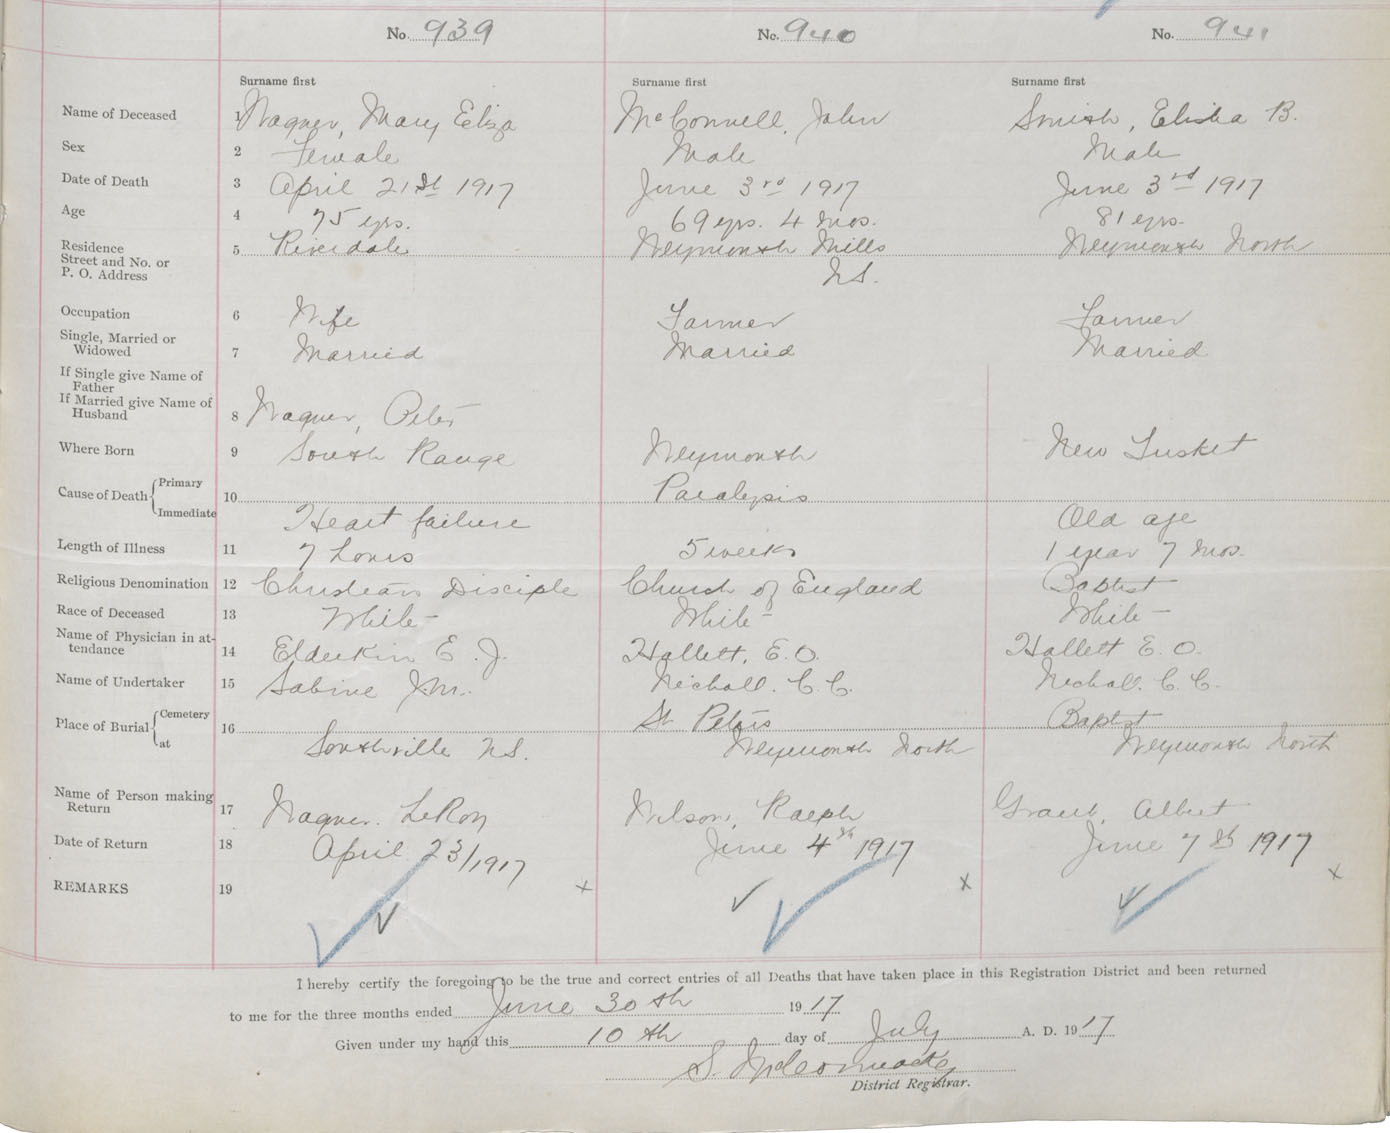 No. 939 No. 940 No. 941
Surname first Surname first Surname first
Name of Deceased 1 Wagner, Mary Eliza McConnell, John Smith, Elisha B.
Sex 2 Female Male Male
Date of Death 3 April 21st 1917 June 3rd 1917 June 3rd 1917
Age 4 75 yrs. 69 yrs. 4 mos. 81 yrs.
Residence
Street and No. or 5 Riverdale Weymouth Mills Weymouth North
P. O. Address N.S.
Occupation 6 Wife Farmer Farmer
Single, Married or
Widowed 7 Married Married Married
If Single give Name of
Father
If Married give Name of
Husband 8 Wagner, Peter
Where Born 9 South Range Weymouth New Tusket
Cause of Death Primary 10 Paralysis
Immediate Heart failure Old age
Length of Illness 11 7 hours 5 weeks 1 year 7 mos.
Religious Denomination 12 Christian Disciple Church of England Baptist
Race of Deceased 13 White White White
Name of Physician in at-
tendance 14 Elderkin E. J. Hallett, E. O. Hallett E. O.
Name of Undertaker 15 Sabine J.M. Nichall. C. C. Nichall. C. C.
Place of Burial Cemetery 16 St Peters Baptist
at Southville N.S. Weymouth North Weymouth North
Name of Person making
Return 17 Wagner. LeRoy Wilson, Ralph Grant, Albert
Date of Return 18 April 23/1917 June 4th 1917 June 7th 1917
REMARKS 19 x x x
I hereby certify the foregoing to be the true and correct entries of all Deaths that have taken place in this Registration District and been returned
to me for the three months ended June 30th 1917
Given under my hand this 10th day of July A. D. 1917
S. McCormack
District Registrar.